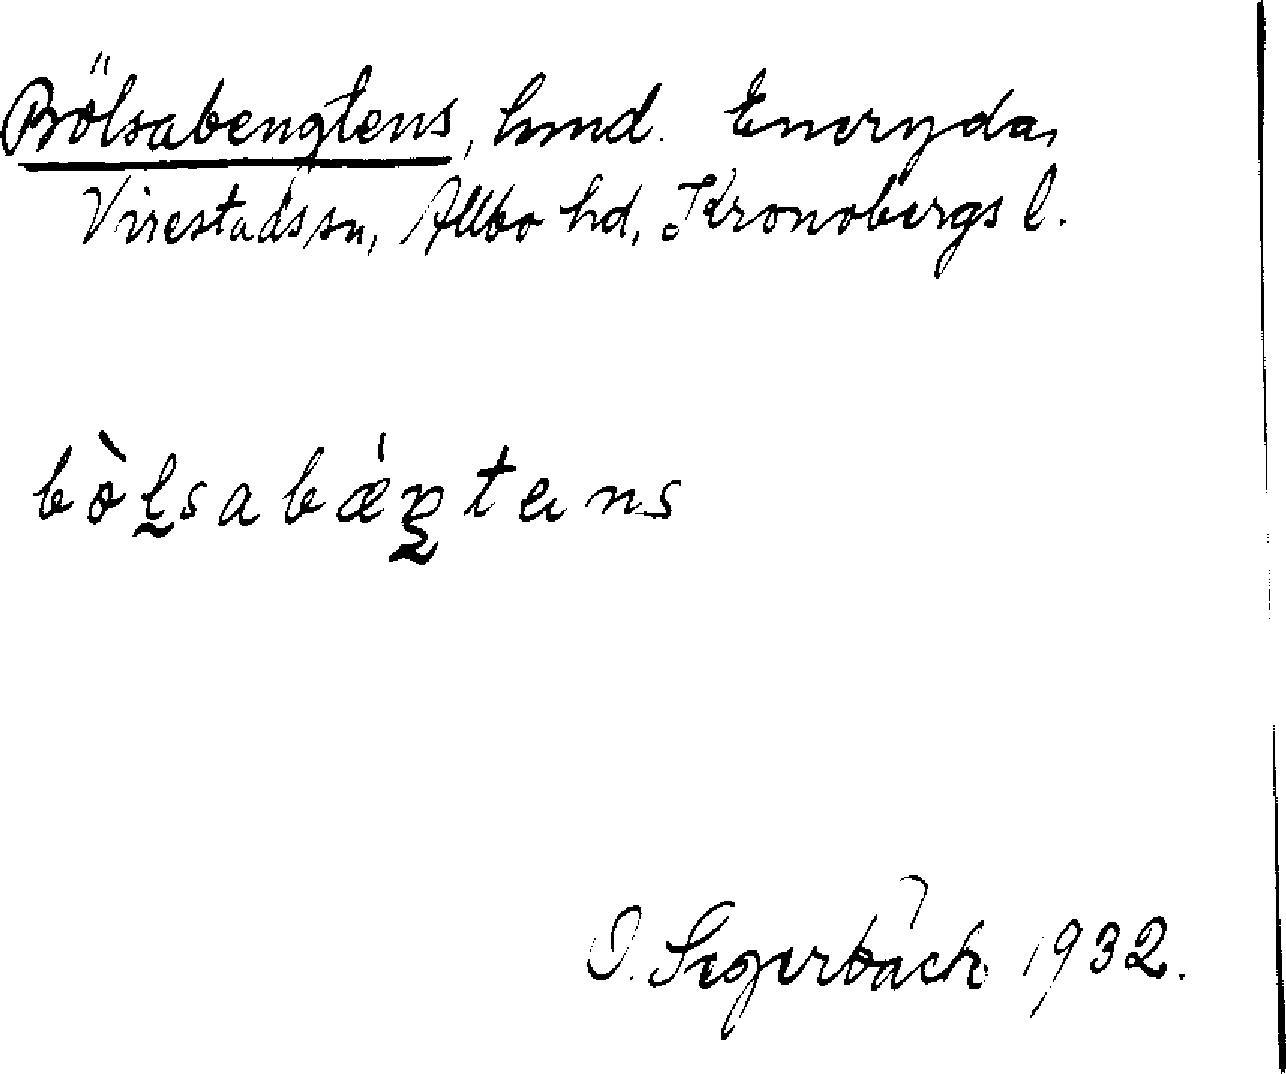 Bölsabengtens, hmd. Eneryda,
Virestads sn, Allbo hd, Kronobergs l.
O. Segerbäck 1932.